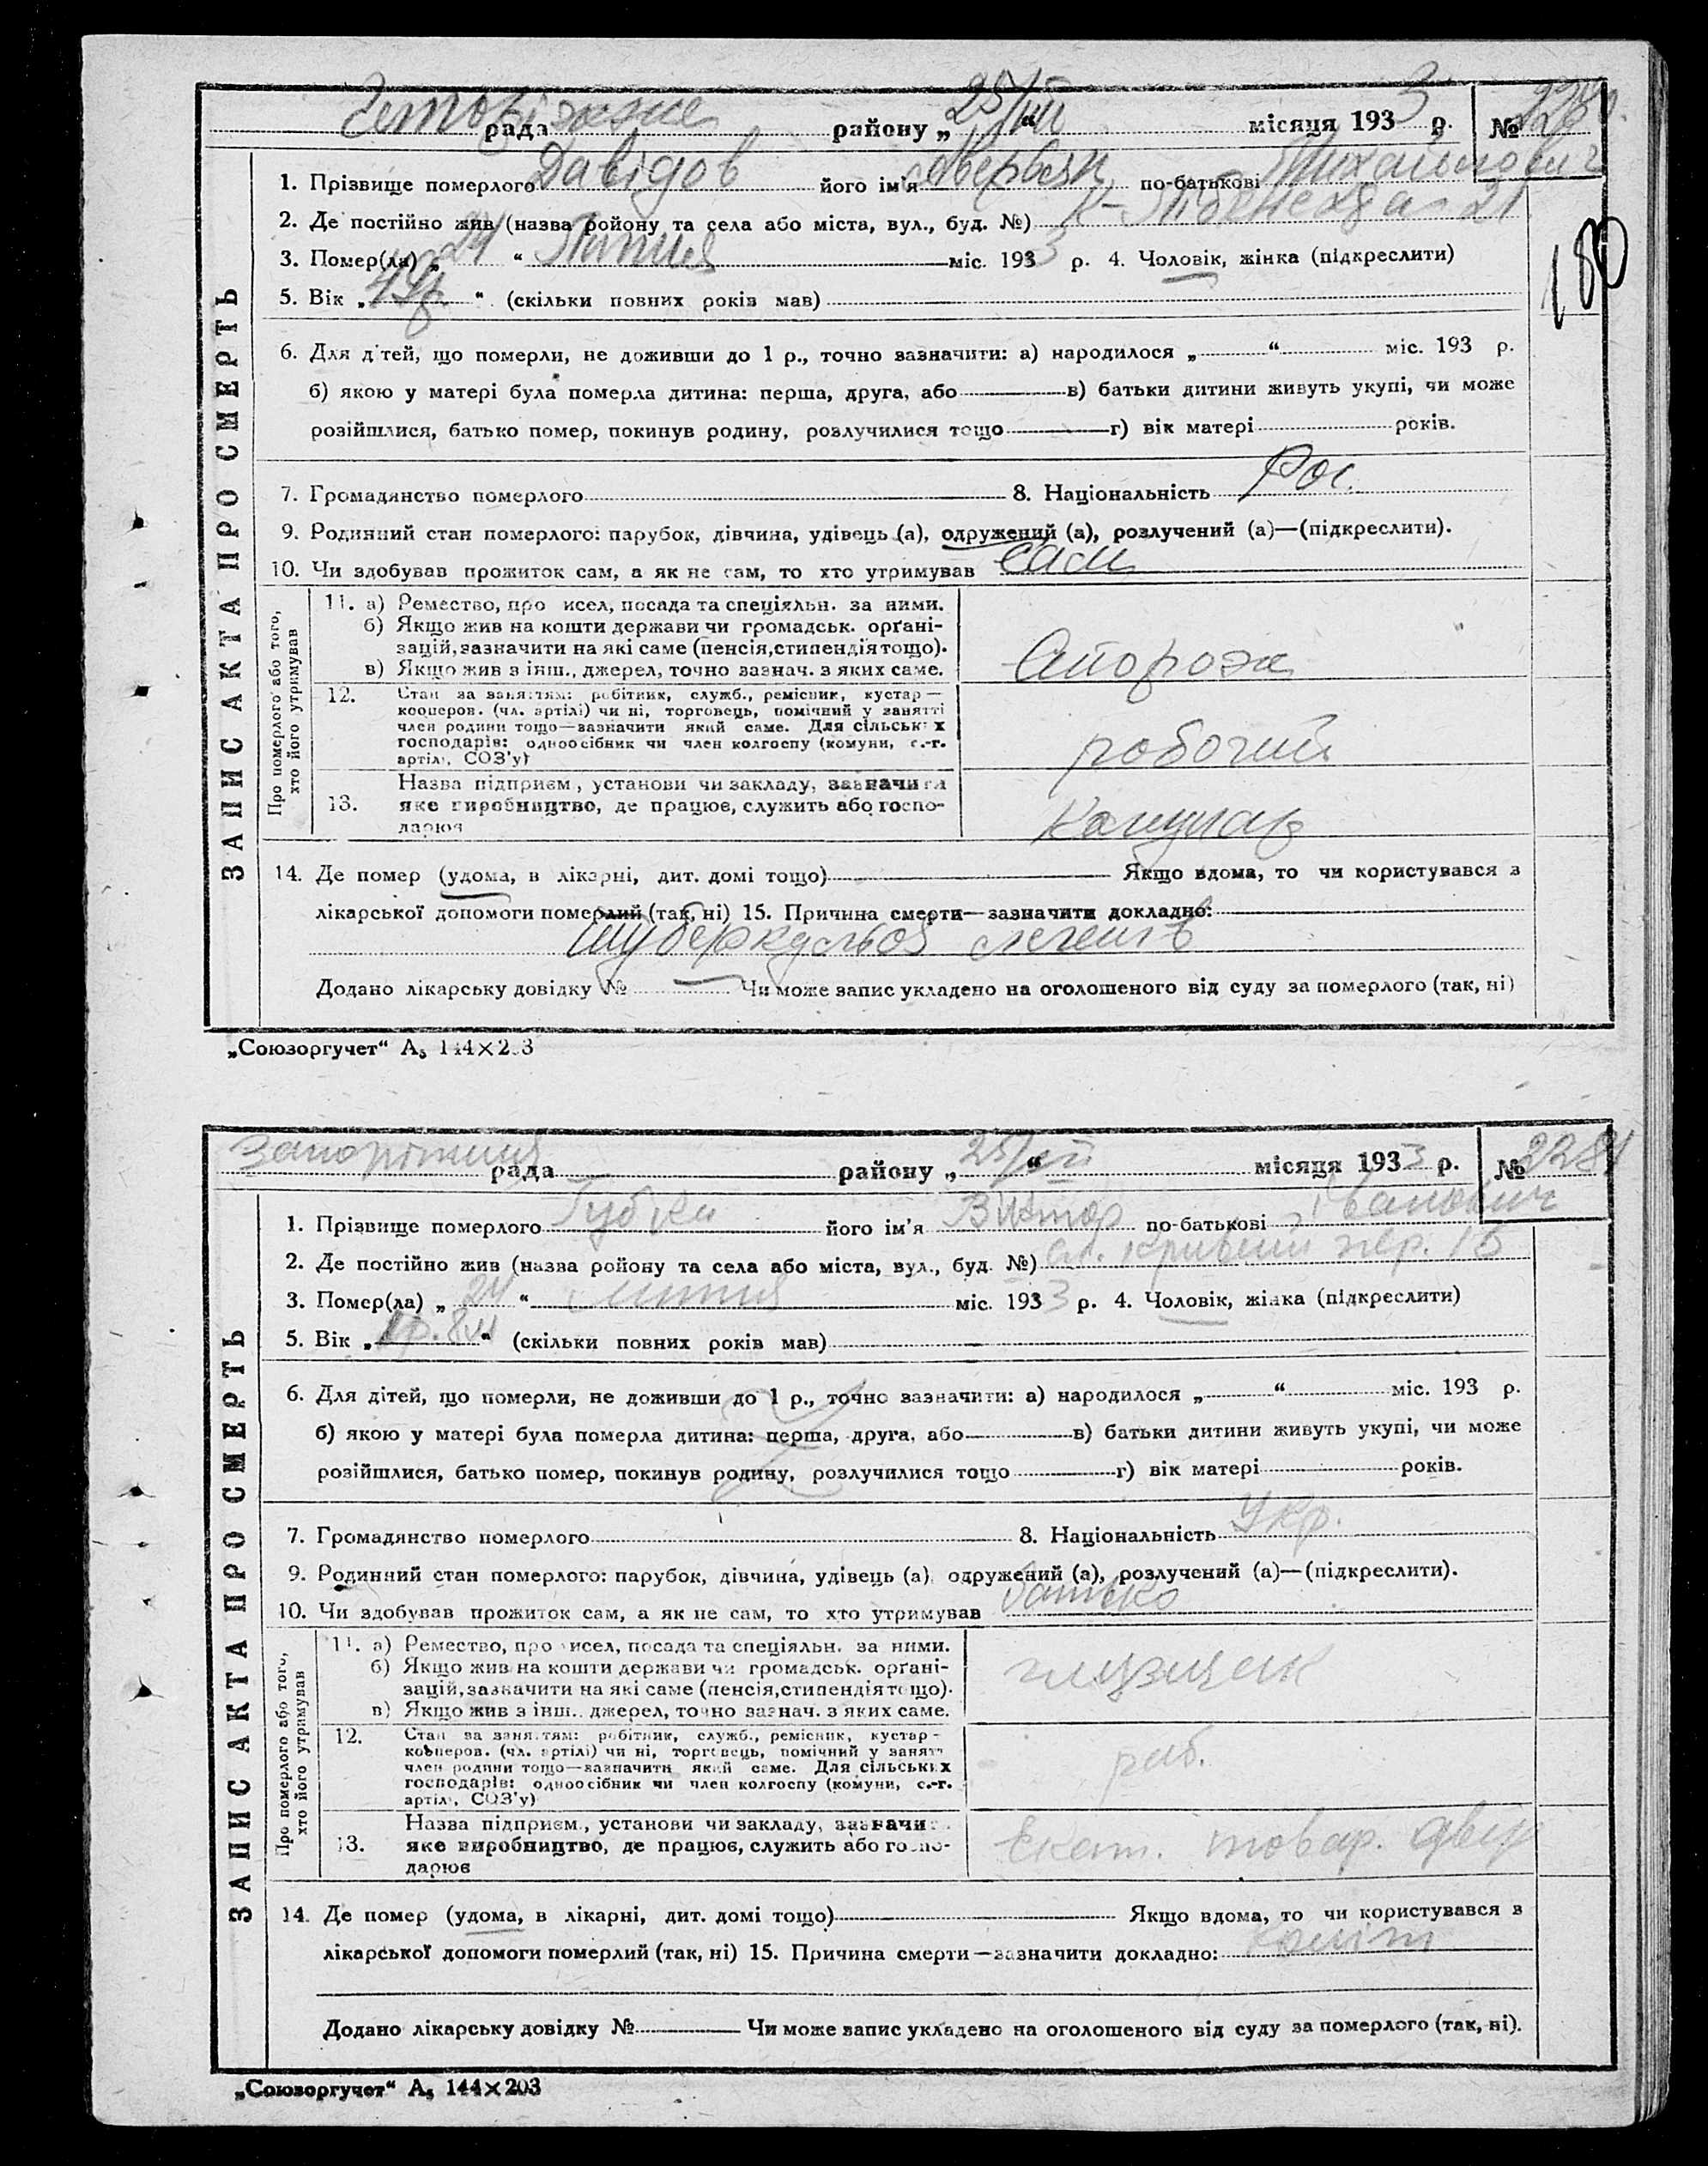 рада району „25/VII“ місяця 1933 р. №
1. Прізвище померлого Давідов його ім'я по-батькові Михайлович
2. Де постійно жив (назва ройону та села або міста, вул., буд. №) 21
3. Помер(ла) „24“ Липня міс. 1933 р. 4. Чоловік, жінка (підкреслити)
180
5. Вік „ “ (скільки повних років мав)
6. Для дітей, що померли, не доживши до 1 р., точно зазначити: а) народилося „ “ міс. 193 р.
б) якою у матері була померла дитина: перша, друга, або в) батьки дитини живуть укупі, чи може
розійшлися, батько помер, покинув родину, розлучилися тощо г) вік матері років.
7. Громадянство померлого 8. Національність Рос.
9. Родинний стан померлого: парубок, дівчина, удівець (а), одружений (а), розлучений (а)—(підкреслити).
10. Чи здобував прожиток сам, а як не сам, то хто утримував сам
ЗАПИС АКТА ПРО СМЕРТЬ
Про померлого або того, хто його утримував
11. а) Ремество, про исел, посада та спеціяльн. за ними.
б) Якщо жив на кошти держави чи громадськ. орґані-
зацій, зазначити на які саме (пенсія, стипендія тощо).
в) Якщо жив з інш., джерел, точно зазнач. з яких саме.
Сторож
12. Стан за заняттям: робітник, служб., ремісник, кустар—
кооперов. (чл. артілі) чи ні, торговець, помічний у занятті
член родини тощо—зазначити який саме. Для сільських
господарів: одноосібник чи член колгоспу (комуни, с.-г.
артілі, СОЗ'у)
робочий
13. Назва підприєм., установи чи закладу, зазначити
яке виробництво, де працює, служить або госпо-
дарює
Комунар
14. Де помер (удома, в лікарні, дит. домі тощо) Якщо вдома, то чи користувався з
лікарської допомоги померлий (так, ні) 15. Причина смерти—зазначити докладно:
туберкульоз легенів
Додано лікарську довідку № Чи може запис укладено на оголошеного від суду за померлого (так, ні)
„Союзоргучет“ А₅ 144×203
Запоріжжя рада району „25/VII“ місяця 1933 р. № 2284
1. Прізвище померлого його ім'я Виктор по-батькові Іванович
2. Де постійно жив (назва ройону та села або міста, вул., буд. №) пер. 15
3. Помер(ла) „24“ липня міс. 1933 р. 4. Чоловік, жінка (підкреслити)
5. Вік „1р. 8м“ (скільки повних років мав)
6. Для дітей, що померли, не доживши до 1 р., точно зазначити: а) народилося „ “ міс. 193 р.
б) якою у матері була померла дитина: перша, друга, або в) батьки дитини живуть укупі, чи може
розійшлися, батько помер, покинув родину, розлучилися тощо г) вік матері років.
7. Громадянство померлого 8. Національність Укр.
9. Родинний стан померлого: парубок, дівчина, удівець (а), одружений (а), розлучений (а)—(підкреслити).
10. Чи здобував прожиток сам, а як не сам, то хто утримував батько
ЗАПИС АКТА ПРО СМЕРТЬ
Про померлого або того, хто його утримував
11. а) Ремество, про исел, посада та спеціяльн. за ними.
б) Якщо жив на кошти держави чи громадськ. орґані-
зацій, зазначити на які саме (пенсія, стипендія тощо).
в) Якщо жив з інш., джерел, точно зазнач. з яких саме.
12. Стан за заняттям: робітник, служб., ремісник, кустар-
кооперов. (чл. артілі) чи ні, торговець, помічний у занятті
член родини тощо—зазначити який саме. Для сільських
господарів: одноосібник чи член колгоспу (комуни, с.-г.
артілі, СОЗ'у)
роб.
13. Назва підприєм., установи чи закладу, зазначити
яке виробництво, де працює, служить або госпо-
дарює
Екат. товар. двір
14. Де помер (удома, в лікарні, дит. домі тощо) Якщо вдома, то чи користувався з
лікарської допомоги померлий (так, ні) 15. Причина смерти—зазначити докладно: коліт
Додано лікарську довідку № Чи може запис укладено на оголошеного від суду за померлого (так, ні).
„Союзоргучет“ А₅ 144×203